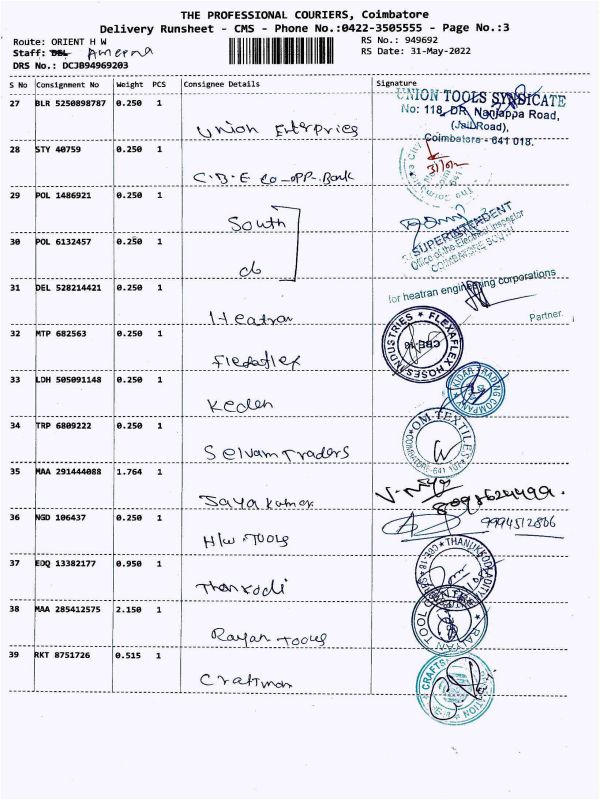 THE PROFESSIONAL COURIERS, Coimbatore
Delivery Runsheet - CMS - Phone No.:0422-3505555 - Page No.:3
Route: ORIENT H W RS No.: 949692
Staff: DEL Ameena RS Date: 31-May-2022
DRS No.: DCJB94969203
S No Consignment No Weight PCS Consignee Details Signature
27 BLR 5250898787 0.250 1 Union Enterprices
UNION TOOLS SYNDICATE
No: 118, DR. Nanjappa Road,
(Jail Road),
Coimbatore - 641 018.
28 STY 40759 0.250 1 C.B.E Co-opp. Bank
29 POL 1486921 0.250 1 South
30 POL 6132457 0.250 1 do
SUPERINTENDENT
Office of the Electrical Inspector
COIMBATORE SOUTH
31 DEL 528214421 0.250 1 Heatran
for heatran engineering corporations
Partner.
32 MTP 682563 0.250 1 Flexaflex
FLEXAFLEX HOSES INDUSTRIES
CBE-18
33 LDH 505091148 0.250 1 Keden
KIDAR TRADING COMPANY
34 TRP 6809222 0.250 1 Selvam Traders
OM TEXTILES
COIMBATORE-641
35 MAA 291444088 1.764 1 Jaya kumar
36 NGD 106437 0.250 1 H/w Tools 9994512866
37 EDQ 13382177 0.950 1 Thankodi
38 MAA 285412575 2.150 1 Rayan Tools
RAYAN TOOL CENTRE
39 RKT 8751726 0.515 1 Craftman